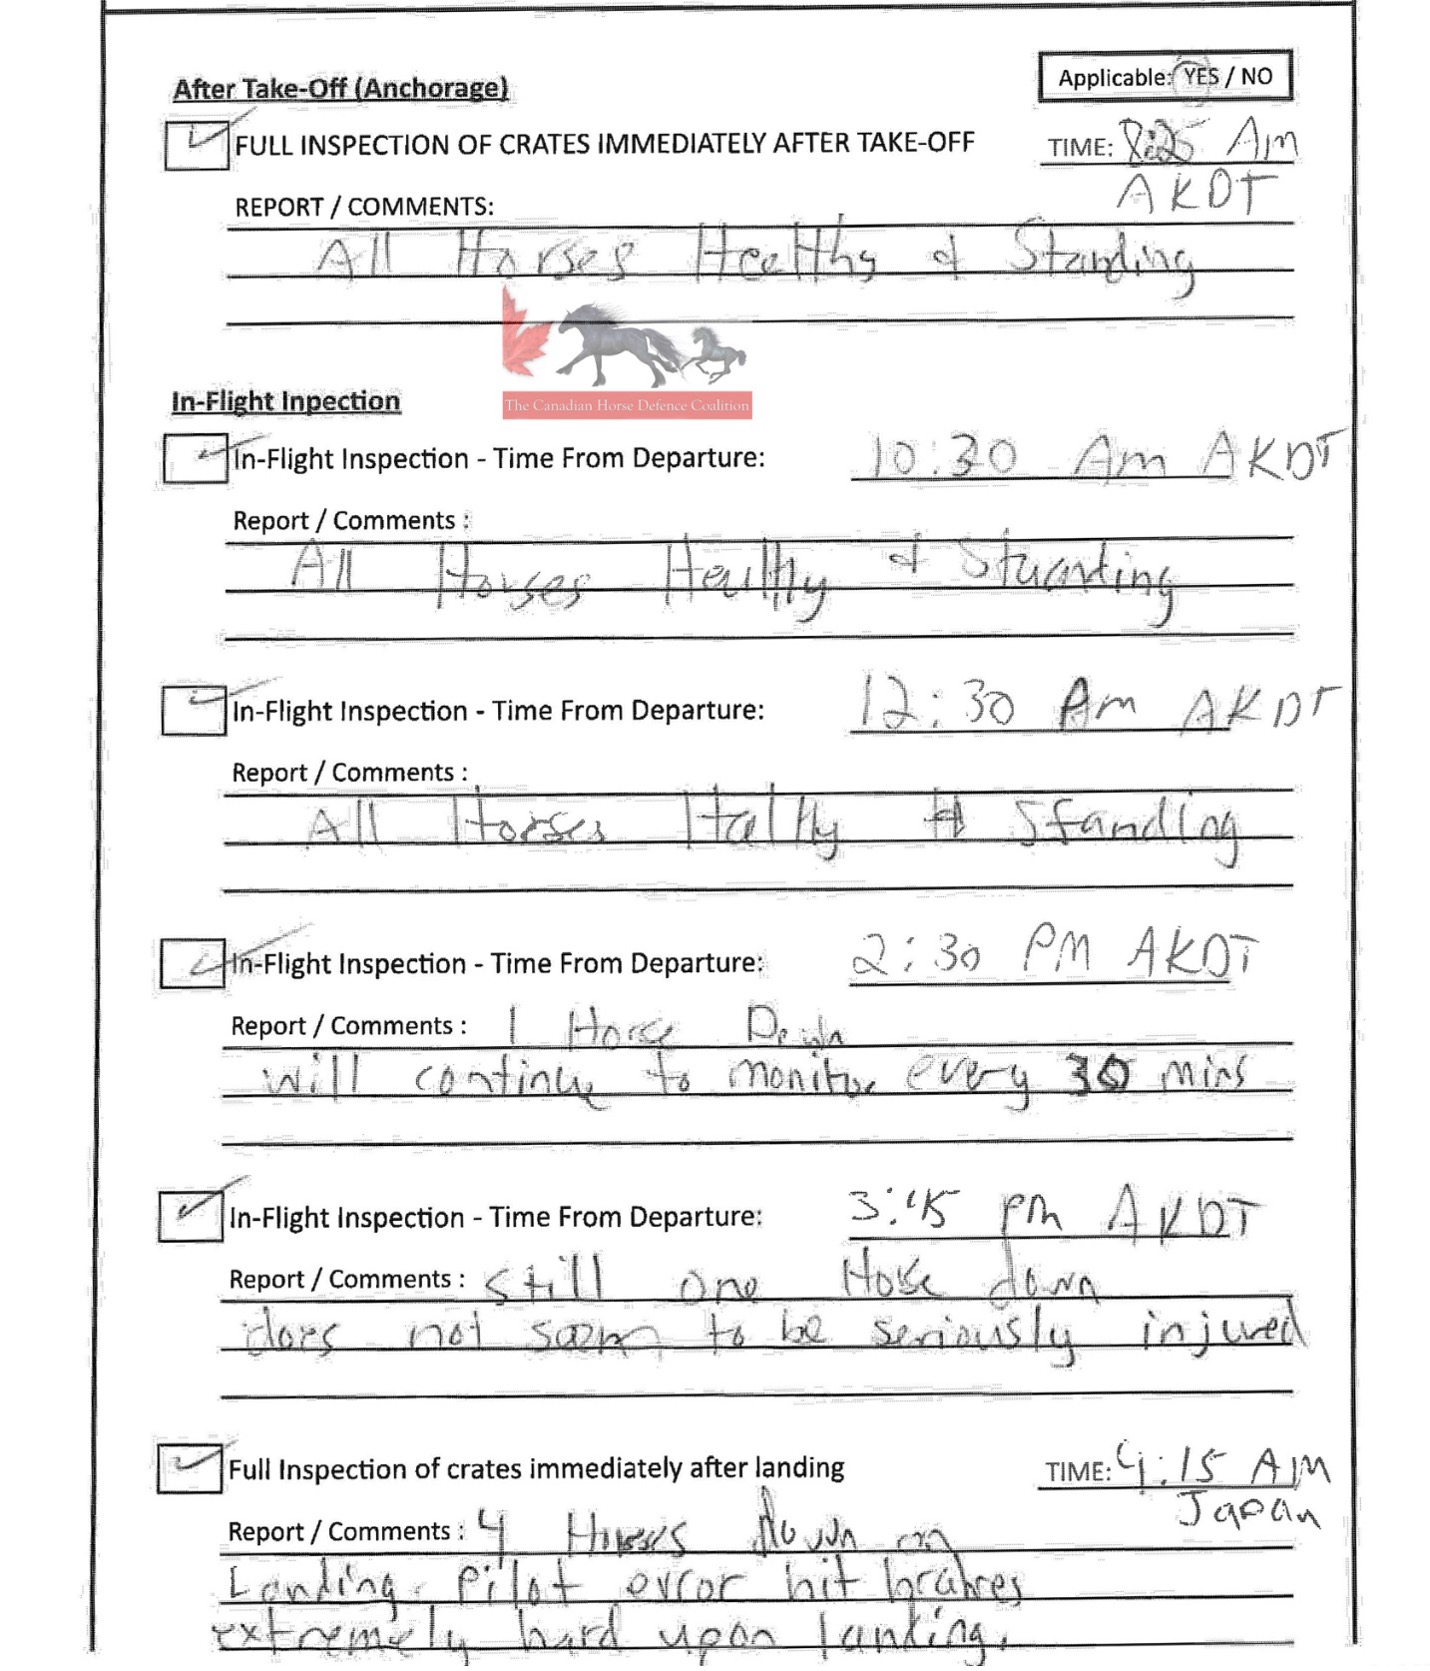 After Take-Off (Anchorage)
Applicable: YES / NO
FULL INSPECTION OF CRATES IMMEDIATELY AFTER TAKE-OFF
TIME: 8:25 Am
AKDT
REPORT / COMMENTS:
All Horses Heelthy & Standing
The Canadian Horse Defence Coalition
In-Flight Inpection
In-Flight Inspection - Time From Departure: 10:30 Am AKDT
Report / Comments :
All Horses Healthy & Standing
In-Flight Inspection - Time From Departure: 12:30 Pm AKDT
Report / Comments :
All Horses & Standing
In-Flight Inspection - Time From Departure: 2:30 PM AKDT
Report / Comments : 1 Horse Down
will continue to monitor every 30 mins
In-Flight Inspection - Time From Departure: 3:45 pm AKDT
Report / Comments : still one Horse down
does not seem to be seriously injured
Full Inspection of crates immediately after landing
TIME: 4:15 AM
Japan
Report / Comments : 4 Horses down on
Landing. pilot error hit brakes
extremely hard upon landing.